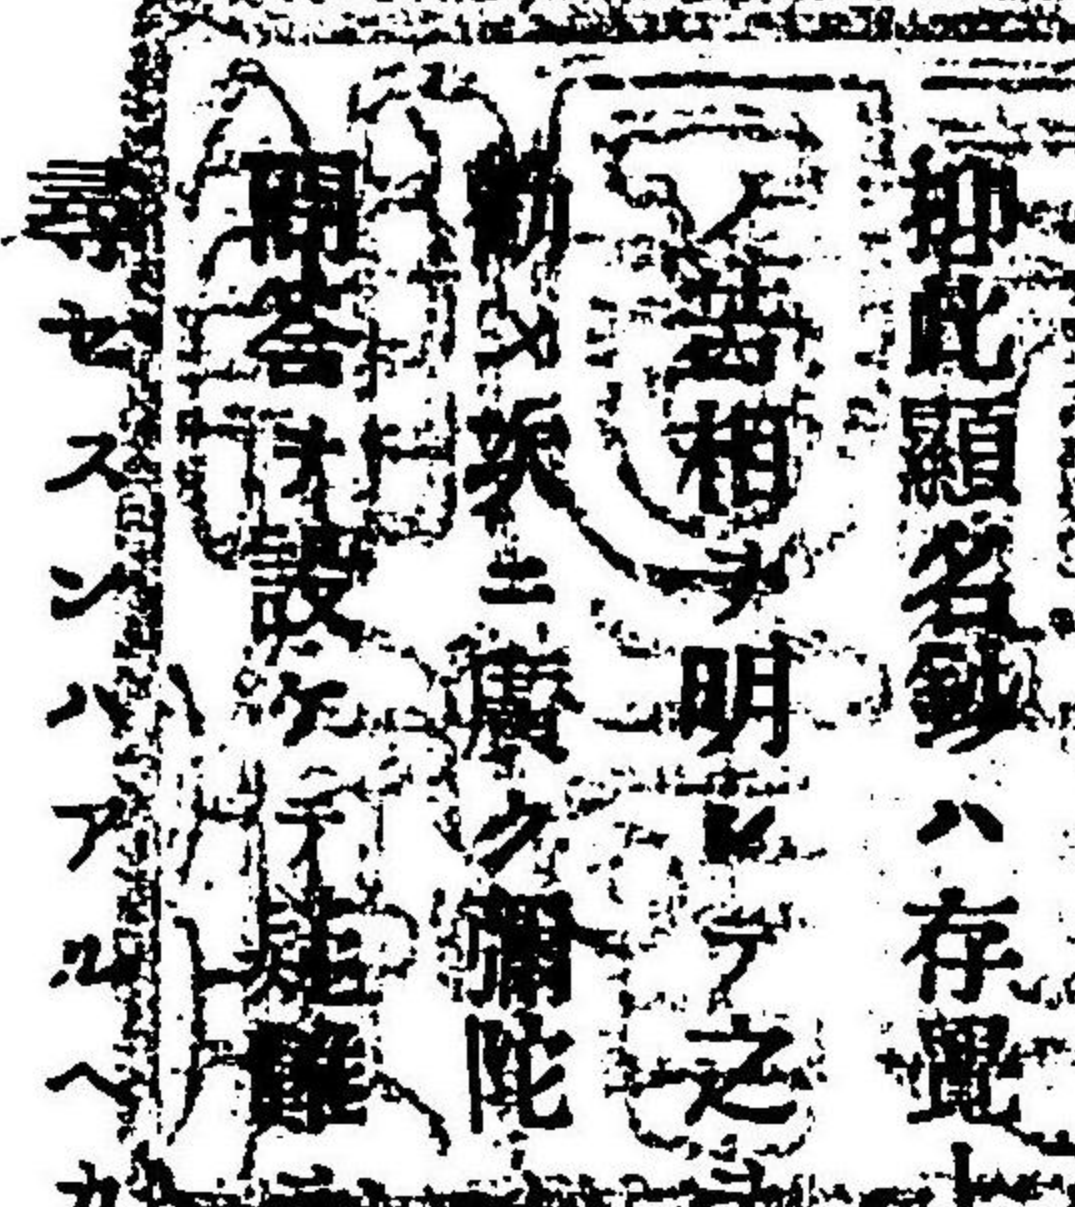 抑此顕名鈔ハ存覺
ノ苦相ヲ明シテ之
勧メ次ニ廣ク彌陀
問答ヲ設ケテ疑難
セスンハアルヘカ